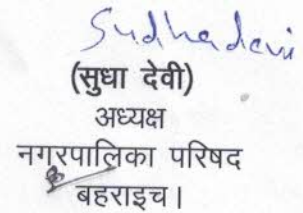 Sudhadevi
(सुधा देवी)
अध्यक्ष
नगरपालिका परिषद
बहराइच।